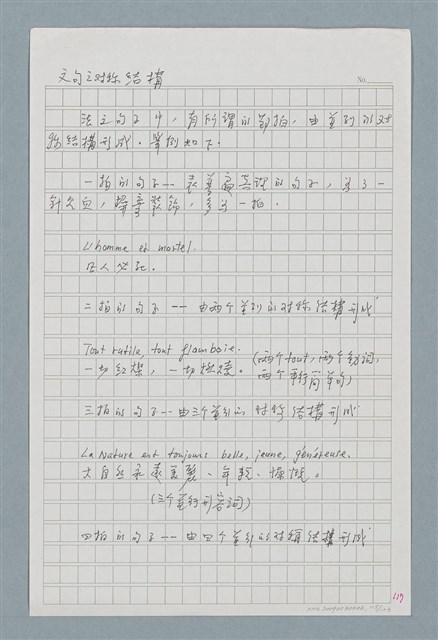 文句之对称结構
No.
法文句子中，有所謂的節拍，由並列的对
称结構形成。舉例如下。
一拍的句子--表達 真理的句子，
，多为一拍。
L'homme est mortel.
凡人必死。
二拍的句子--由两个並列的对称结構形成
Tout rutile, tout flamboie.
一切红燦，一切燃燒。
(两个tout, 两个動詞,
两个平行简單句)
三拍的句子--由三个並列的对称结構形成
La Nature est toujours belle, jeune, généreuse.
大自然永遠美麗、年輕、慷慨。
(三个並行形容詞)
四拍的句子--由四个並列的对稱结構形成